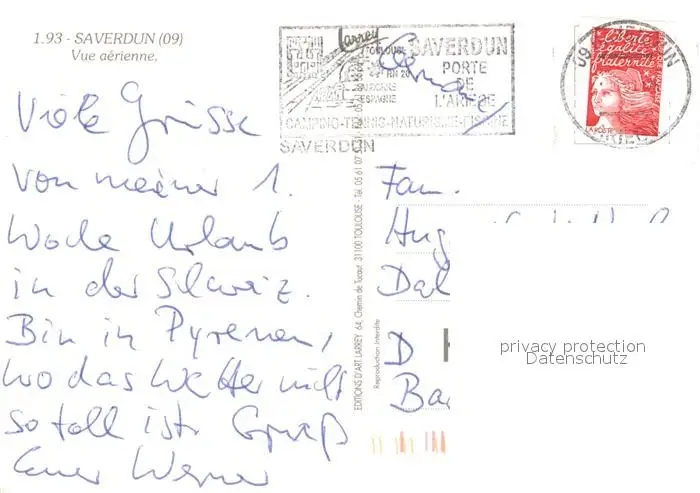 1.93 - SAVERDUN (09)
Vue aérienne.
Larrey
TOULOUSE
SAVERDUN
RN 20
PORTE
DE
ESPAGNE
L'ARIÈGE
CAMPING-TENNIS-NATURISME-PISCINE
SAVERDUN
09
liberté
égalité
fraternité
LA POSTE
Viele Grüsse
von meiner 1.
Woche Urlaub
in der Schweiz.
Bin in Pyrenen,
wo das Wetter nicht
so toll ist. Gruß
Euer Werner
EDITIONS D'ART LARREY 64, Chemin de Tucaut, 31100 TOULOUSE - Tél. 05 61 07
Reproduction interdite
Fam.
Hug
Dal
D
Ba
privacy protection
Datenschutz